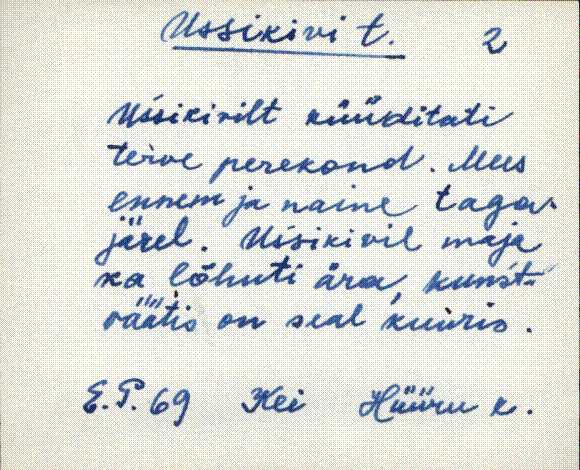 Ussikivi t. 2
Uśsikivilt küüditati
terve perekond. Mees
ennem ja naine taga-
järel. Uśsikivil maja
ka lõhuti ära, kunśt-
väätis on seal kuuris.
E.P. 69 Kei Hüüru k.